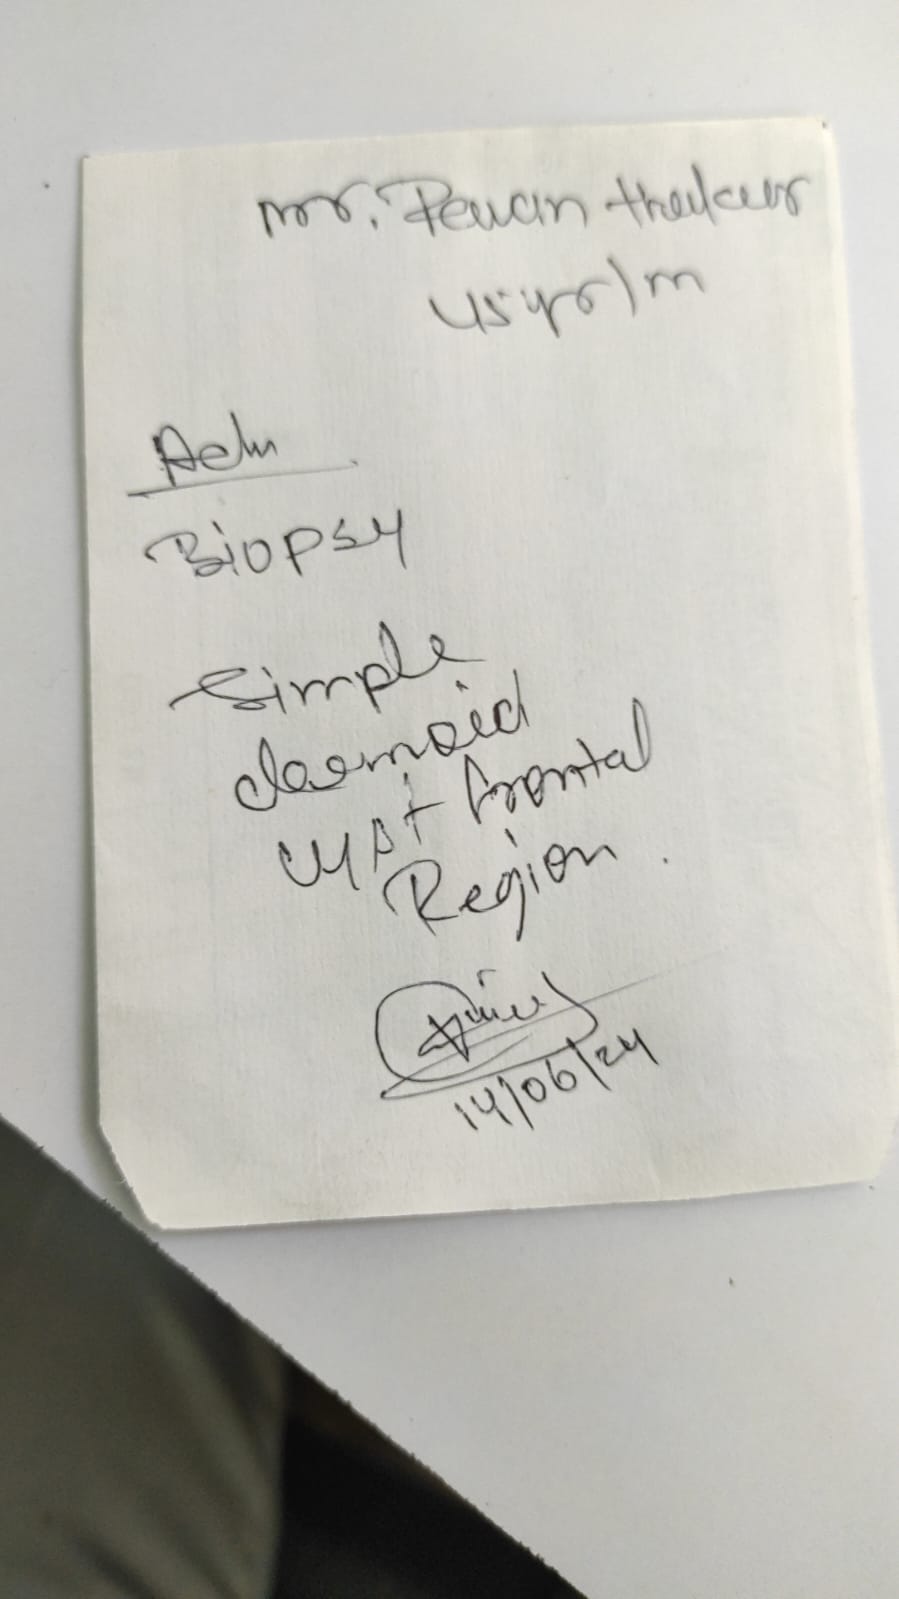 Mr. Pawan thakur
45yr/m
Adv
Biopsy
Simple
dermoid
cyst frontal
Region.
14/06/24